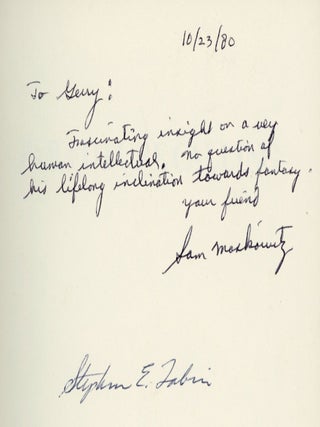 10/23/80
To Gerry:
Fascinating insight on a very
human intellectual. No question of
his lifelong inclination towards fantasy.
your friend
Sam Moskowitz
Stephen E.